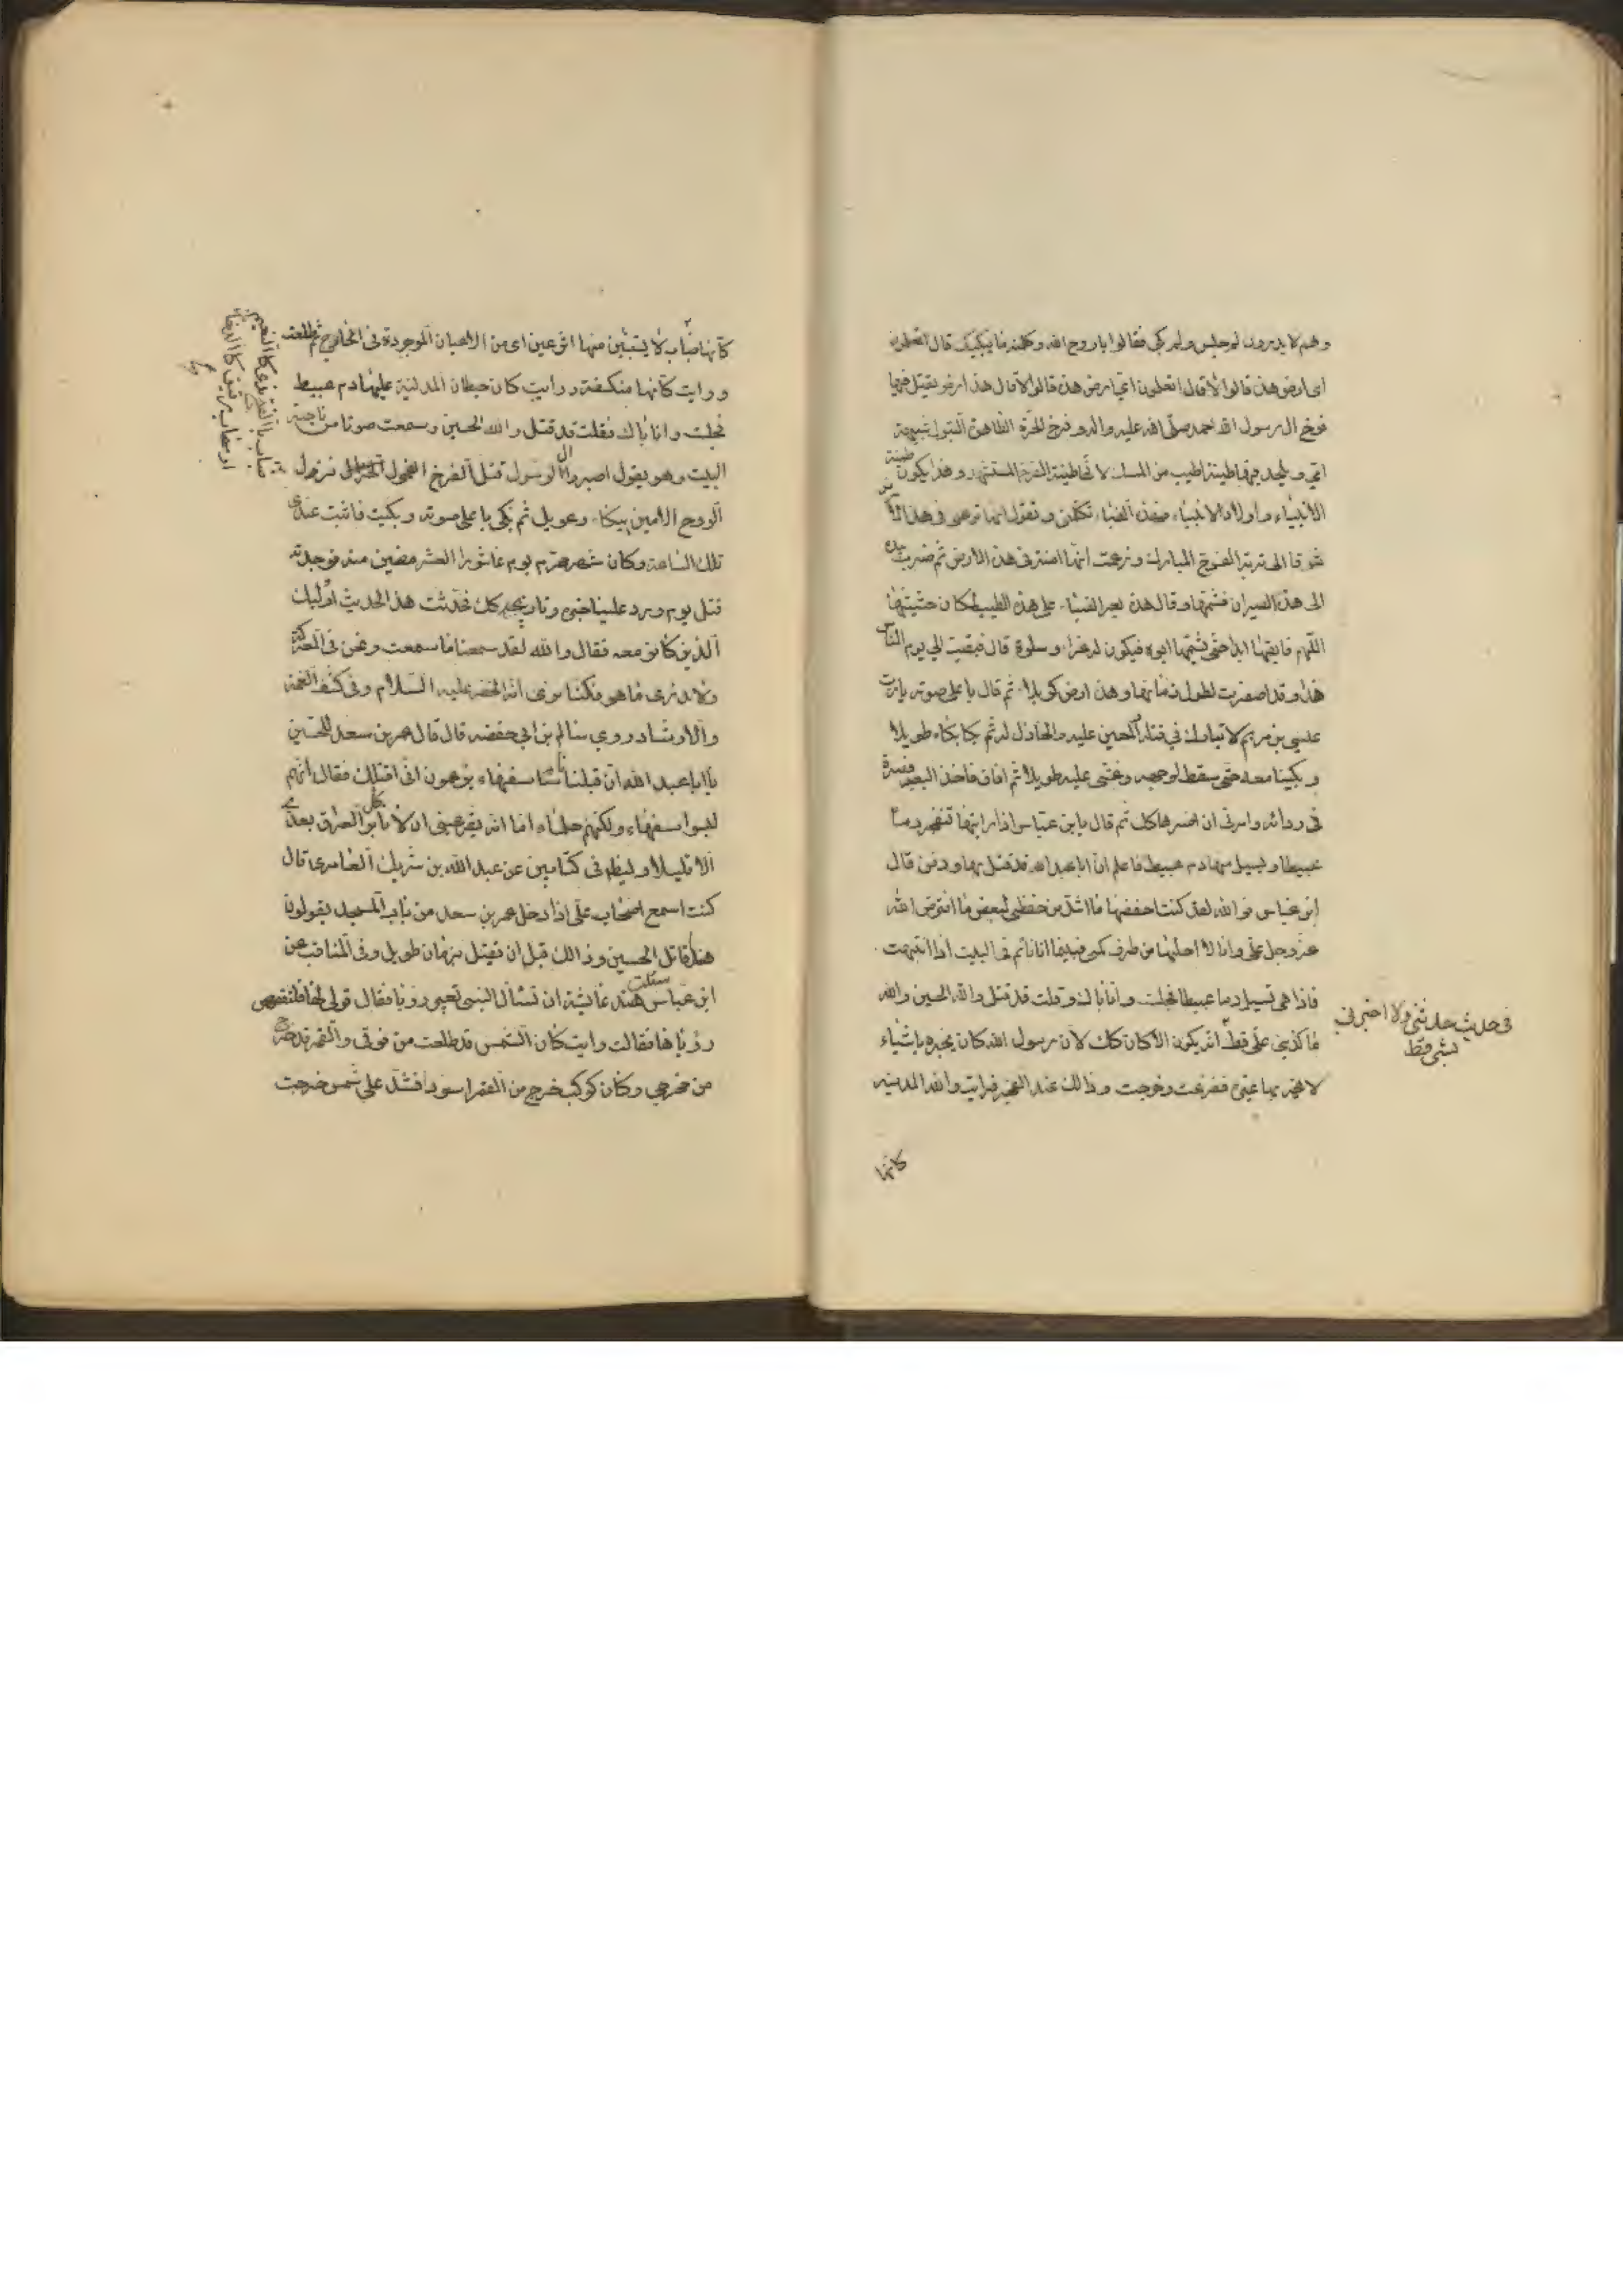 وهم لا يدرون لم جلس ولم بكى فقالوا يا روح الله وكلمته ما يبكيك قال اتعلمون
اى ارض هذه قالوا لا قال اتعلمون اى ارض هذه قالوا لا قال هذه ارض يقتل فيها
فرخ الرسول احمد صلى الله عليه واله وفرخ الحرة الطاهرة البتول شبيهة
امي ويلحد فيها طينة اطيب من المسك لانها طينة الفرخ المستشهد وهكذا يكون طينة
الانبياء واولاد الانبياء فهذه الظباء تكلمني وتقول انها ترعى في هذه الارض
شوقا الى تربة الفرخ المبارك وزعمت انها امنة في هذه الارض ثم ضرب بيده
الى هذه الصيران فشمها وقال هذه بعر الظباء على هذه الطيب لمكان حشيشها
اللهم فابقها ابدا حتى يشمها ابوه فيكون له عزاء وسلوة قال فبقيت الى يوم الناس
هذا وقد اصفرت لطول زمانها وهذه ارض كربلا ثم قال باعلى صوته يا رب
عيسى بن مريم لا تبارك في قتلته والمعين عليه والخاذل له ثم بكا بكاء طويلا
وبكينا معه حتى سقط لوجهه وغشى عليه طويلا ثم افاق فاخذ البعر فصره
في ردائه وامرني ان اصرها كذلك ثم قال يا بن عباس اذا رايتها تنفجر دما
عبيطا ويسيل منها دم عبيط فاعلم ان ابا عبد الله قد قتل بها ودفن قال
ابن عباس فو الله لقد كنت احفظها اشد من حفظى لبعض ما افترض الله
عز وجل على وانا لا احلها من طرف كمى فبينما انا نائم في البيت اذا انتبهت
فاذا هى تسيل دما عبيطا فجلست وانا باك وقلت قد قتل والله الحسين والله
ما كذبنى على قط انه يكون الا كان كك لان رسول الله كان يخبره باشياء
لا يخبر بها غيره ففزعت وخرجت وذالك عند الفجر فرايت والله المدينه
في حديث حدثني ولا اخبرني
بشي قط
كانها
كانها ضباب لا يستبين منها اثر عين اى من الاعيان الموجودة في الخارج ثم طلعت
ورايت كانها منكسفة ورايت كان حيطان المدينة عليها دم عبيط
فجلست وانا باك فقلت قد قتل والله الحسين وسمعت صوتا من ناحية
البيت وهو يقول اصبروا ال الرسول قتل الفرخ النحول نزول
الروح الامين ببكاء وعويل ثم بكى باعلى صوته وبكيت فاثبت عندى
تلك الساعة وكان شهر محرم يوم عاشورا العشر مضين منه فوجدته
قتل يوم ورد علينا خبره وتاريخه كك فحدثت هذا الحديث اولئك
الذين كانوا معه فقال والله لقد سمعنا ما سمعت ونحن في المعركة
ولا ندرى ما هو فكنا نرى انه الخضر عليه السلام وفي كشف الغمة
والارشاد روي سالم بن ابي حفصه قال قال عمر بن سعد للحسين
يا ابا عبد الله ان قبلنا ناسا سفهاء يزعمون انى اقتلك فقال انهم
ليسوا سفهاء ولكنهم حلماء اما انه يقر عينى ان لا تاكل بر العراق بعدى
الا قليلا عن عبد الله بن شريك العامرى قال
كنت اسمع اصحاب على اذا دخل عمر بن سعد من باب المسجد يقولون
هذا قاتل الحسين وذالك قبل ان يقتل بزمان طويل وفى المناقب عن
ابن عباس سئلت هند عايشة ان تسئال النبى تعبير رؤيا فقال قولى لها فلتقصص
رؤياها فقالت رايت كان الشمس قد طلعت من فوقى والقمر قد خرج
من مخرجي وكان كوكب خرج من القمر اسود فشد على شمس خرجت